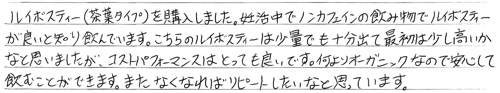 ルイボスティー(茶葉タイプ)を購入しました。妊活中でノンカフェインの飲み物でルイボスティー
が良いと知り飲んでいます。こちらのルイボスティーは少量でも十分出て最初は少し高いか
なと思いましたが、コストパフォーマンスはとっても良いです。何よりオーガニックなので安心して
飲むことができます。また なくなればリピートしたいなと思っています。